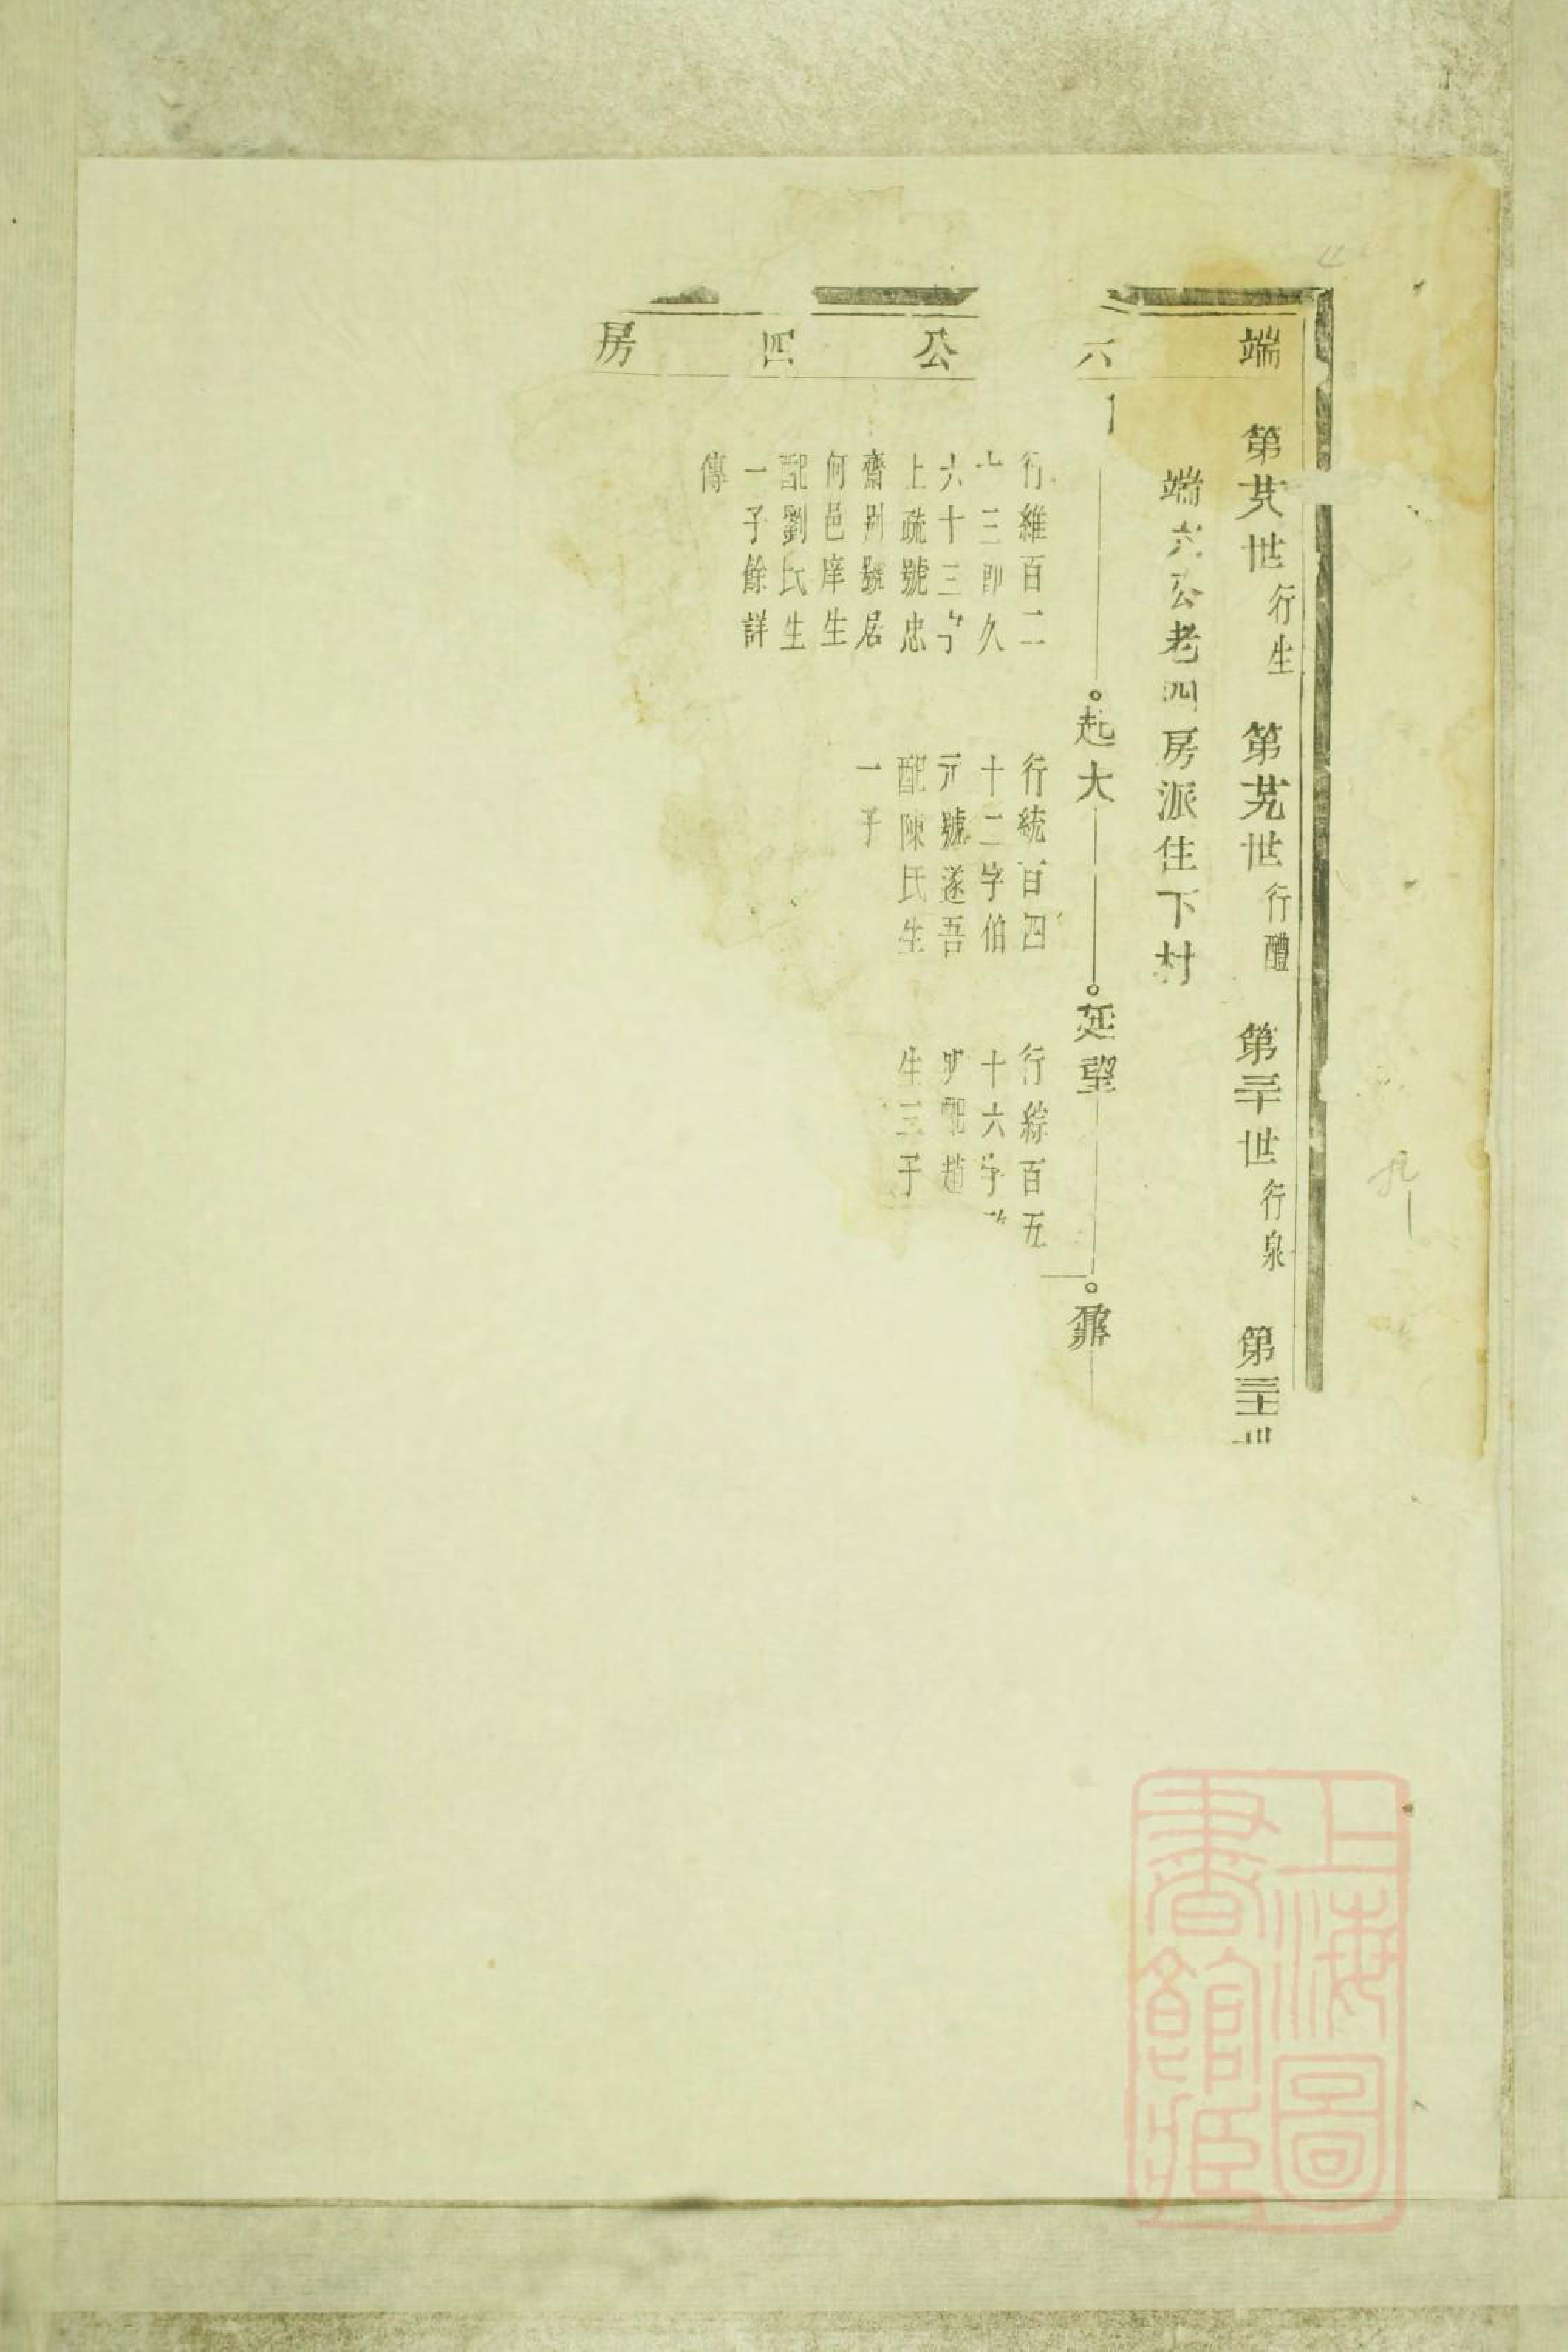 端六公四房
第廿八世行生 第廿九世行醴 第三十世行泉 第三十一世
端六公老四房派住下村
起大 廷望 鼐
行維百二
十三即久
六十三字
上疏號忠
齋別號居
何邑庠生
配劉氏生
一子餘詳
傳
行統百四
十二字伯
元號遂吾
配陳氏生
一子
行綜百五
十六字
配趙
生三子
上海圖書館藏